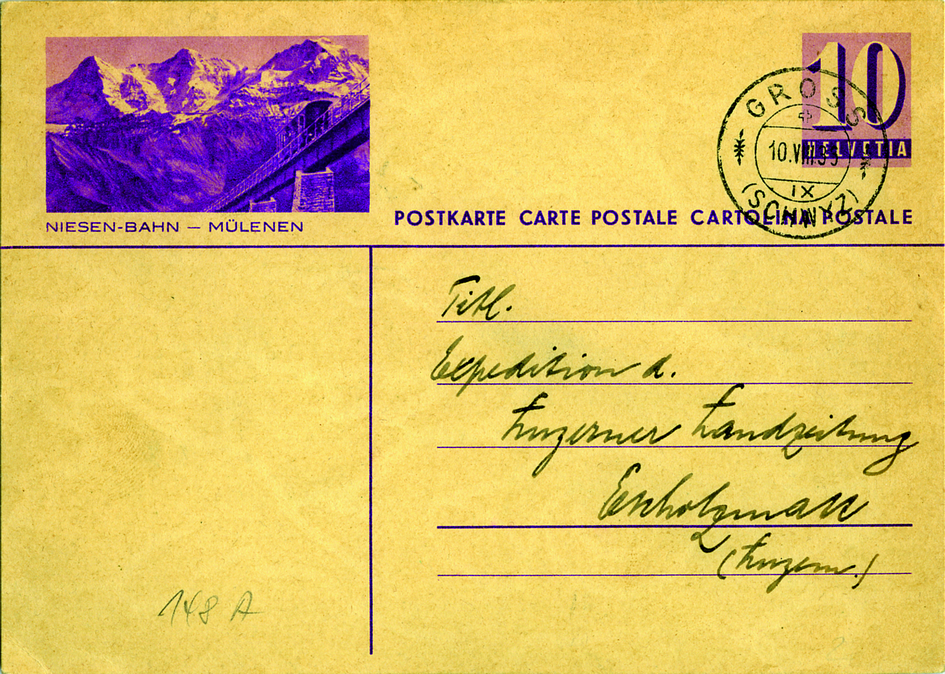 NIESEN-BAHN — MÜLENEN
10
HELVETIA
GROSS
10.VIII.39
IX
(SCHWYZ)
POSTKARTE CARTE POSTALE CARTOLINA POSTALE
Titl.
Expedition d.
Luzerner Landzeitung
Escholzmatt
(Luzern.)
148 A